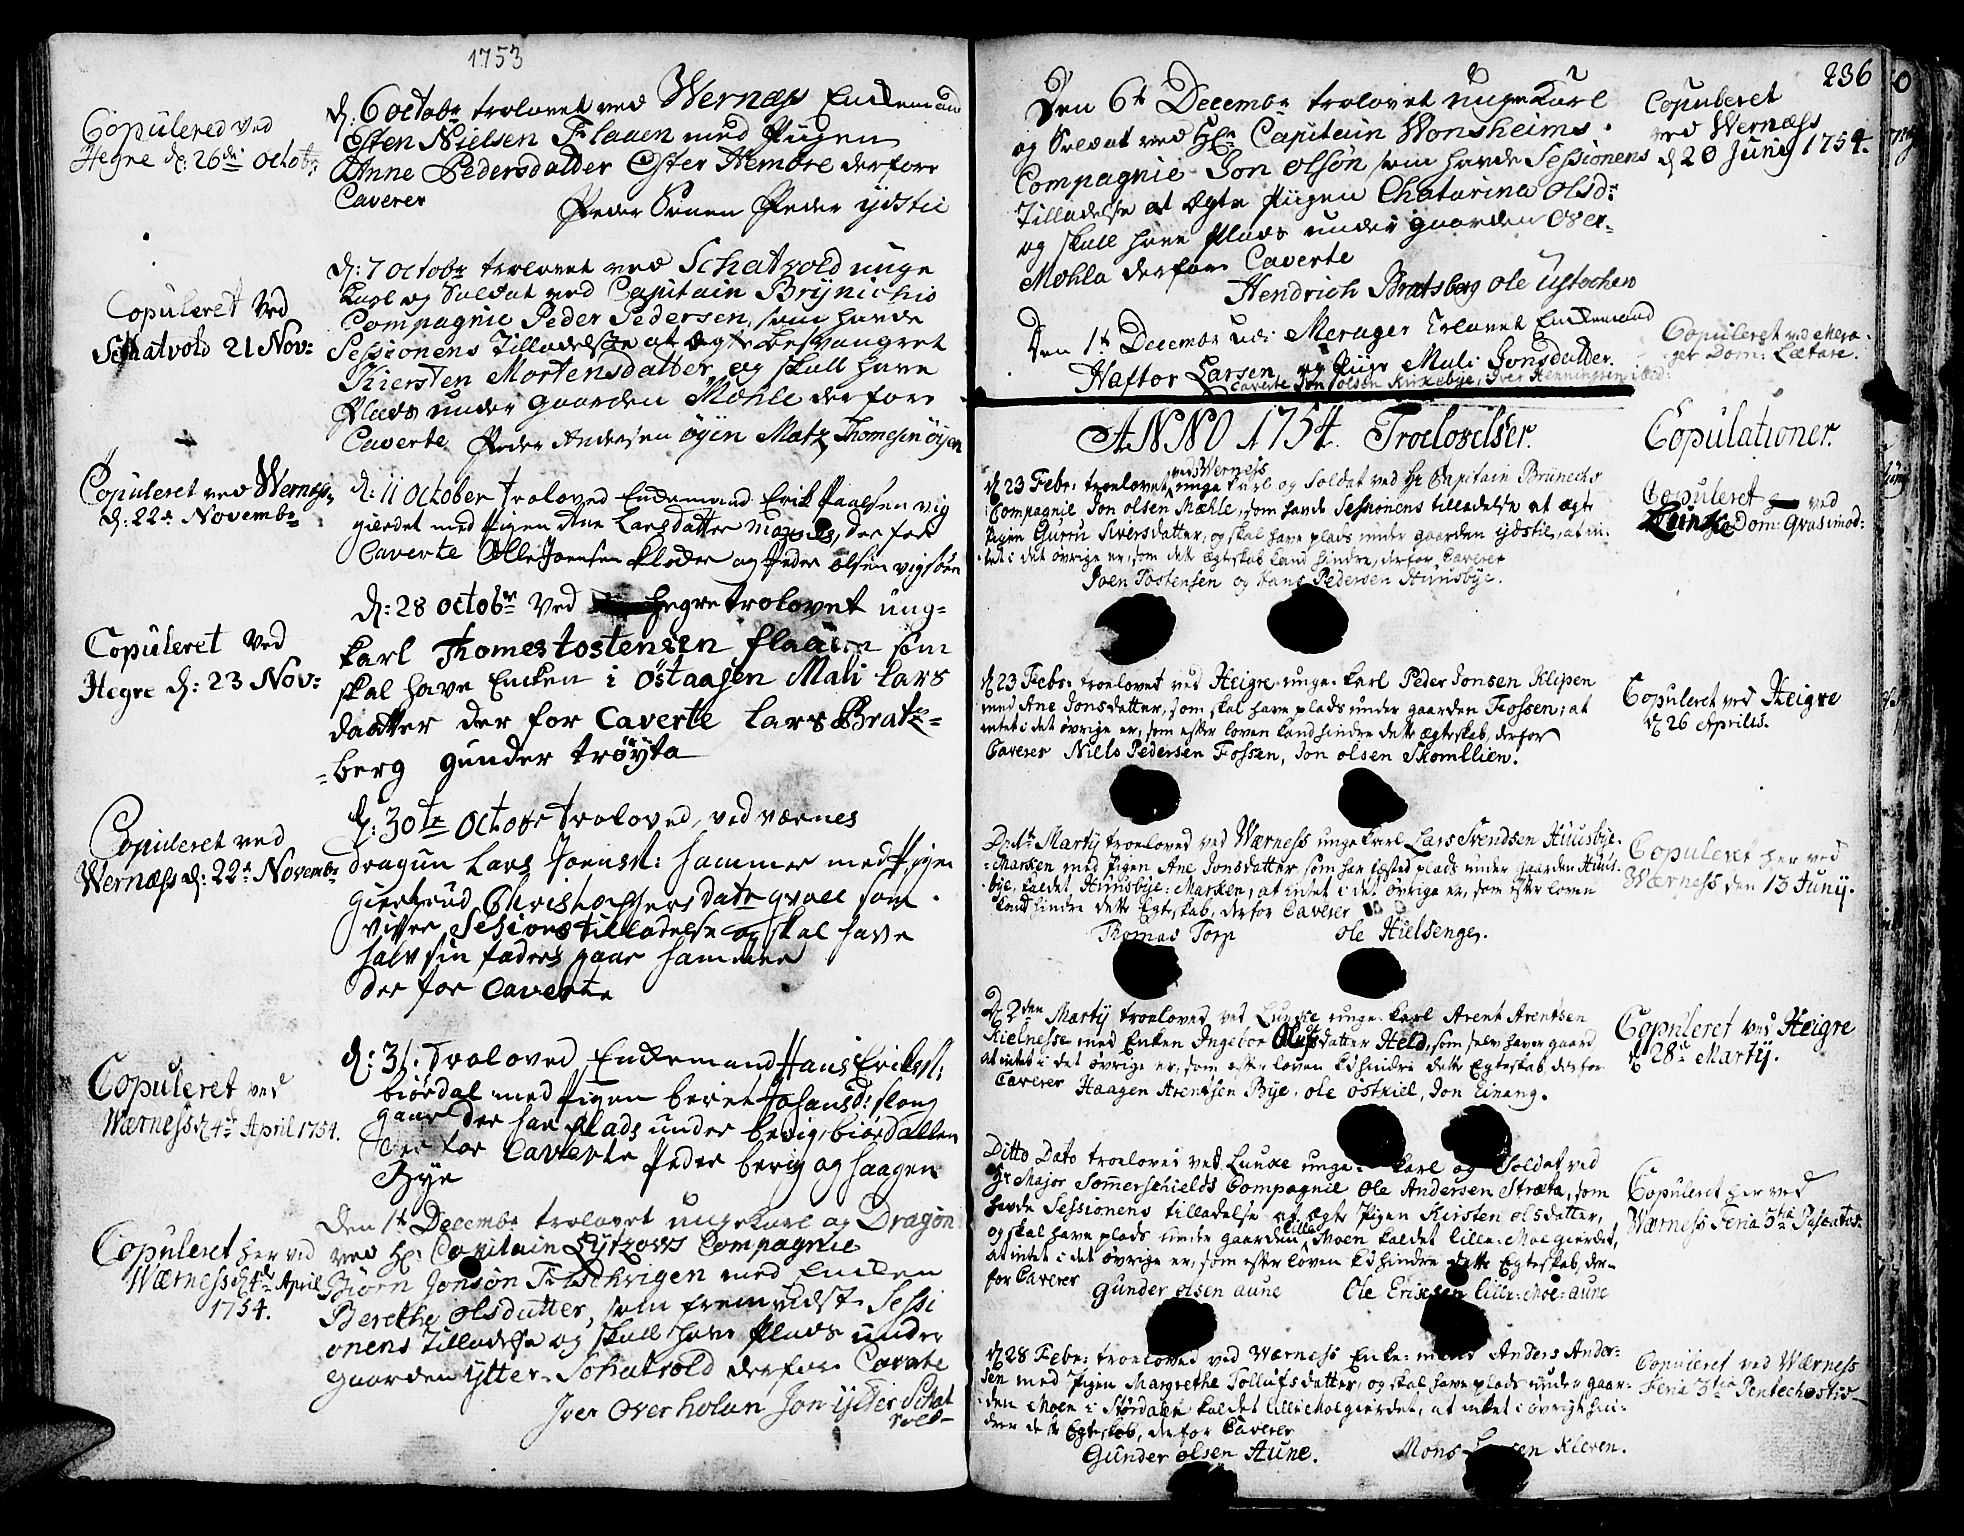 1753
Copulered ved
Hegre d: 26de Octobr:
d: 6 octobr trolovet ved Wernæss Enckemand
Esten Nielsen Flaaen med Pigen
Anne Pedersdatter Ester Hembre derfore
Caverer
Peder Peder ydstie
Copuleret Ved
Schatvold 21 Nov:
d: 7 octobr trolovet ved Schatvold unge
Karl og Soldat ved Capitain Brÿnichs
Compagnie Peder Pedersen, som havde
Sessionens Tilladelse at ægte besvangret
Kiersten Mortensdatter og skall have
Plads under gaarden Mohle derfore
Caverte Peder Andersen øyen Matz Thomesen
Copuleret ved Wernæss
d: 22de Novembr
d: 11 October troloved Enckemand Erik Paalsen vig
gierdet med Pigen Ane Larsdatter der for
Caverte Olle Joensen og Peder olsen
d: 28 octobr Ved hegre trolovet ung-
Copuleret Ved
Hegre d: 23 Nov:
karl Thomes tostensen flaaen som
skal have Encken i östaasen Mali Lars
daatter der for Caverte Lars Bratz-
-berg gunder tröyta
Copuleret ved
Wernæss d: 22de Novembr
d: 30te october troloved ved værnes
dragun Lars Joensen: hammer med Pigen
giertrud Christophersdatr gvall som
viste Sessions tilladelse og skal have
halv sin faders gaar hammer
der for Caverte
Copuleret ved
Wærness d 4de April 1754.
d: 31: Troloved Enckemand Hans Eriksen:
biördal med Pigen beret Johansd: skong
gaar der har Plads under bevig, biördallen
der for Caverte Peder berig og haagen
Bye
Copuleret her ved
Wærness d 4de April
1754.
Den 1te Decembr trolovet ungekarl og Dragon
ved Hr: Capitain Lÿtzows Compagnie
Biörn Jonsön med Encken
Berethe olsdatter, som fremvidste Sessi
onens Tilladelse og skall have Plads under
gaarden ÿtter Schatvold derfore Caverte
Iver overholan Jon ÿtter Schat
vold
236
Den 6te Decembr trolovet unge Karl
og Soldat ved Hr: Capitain Wonsheims
Compagnie Jon olsön som havde Sessionens
Tilladelse at ægte Piigen Chatarina olsdr:
og skall have Plads under gaarden Over-
Mohla derfore Caverte
Hendrich Bratsberg ole
Copuleret
ved Wernæss
d 20 Junÿ 1754.
Den 1te Decembr udi Merager Trlovet Enckemand
Haftor Larsen, og Pige Mali Jonsdatter.
Caverte Jon olsen Kirkebye, Iver Henningsen
Copuleret ved Mera-
ger Dom: Lætare.
ANNO 1754. Troelovelser.
Copulationer.
d 23 Febr: troelovet ved Werness unge karl og Soldat ved Hr Capitain Brünechs
Compagnie Jon olsen Mæhle, som havde Sessionens tilladelse at ægte
Pigen Gurru Siversdatter, og skal have plads under gaarden ydstie, at in-
tet i det övrige er, som dette Egteskab kand hindre, derfor Caverer
Joen Tostensen og Hans Pedersen Huusbye.
Copuleret ved
Dom: Qvasimod:
d 23 Febr: troelovet ved Heigre unge karl Peder Jonsen Klepen
med Ane Jonsdatter, som skal have plads under gaarden Fossen; at
intet i det övrige er, som efter loven kand hindre dette Egteskab, derfor
Caverer Niels Pedersen Fossen, Jon olsen Skomllien.
Copuleret ved Heigre
d 26 Aprilis.
Martÿ troeloved ved Wærness unge karl Lars Svendsen Huusbye-
Marken med Pigen Ane Jonsdatter, som har fæsted plads under gaarden Huus-
bye, kaldet Huusbye-Marken, at intet i det övrige er, som efter loven
kand hindre dette Egteskab, derfor Caverer
Thomas Torp ole Hielsenge.
Copuleret her ved
Wærness den 13 Junÿ.
d 2den Martÿ troeloved ved Luncke unge karl Arent Arentsen
Kielnesse med Enken Ingebor Olufsdatter Held, som selv haver gaard
at intet i det övrige er, som efter loven kd hindre dette Egteskab derfor
Caverer Haagen Arentsen Bye, ole östkiel, Jon Einang.
Copuleret ved Heigre
d 28de Martÿ.
Ditto Dato troelovet ved Luncke unge karl og Soldat ved
Hr Major Sommerschields Compagnie Ole Andersen Stræte, som
havde Sessionens tilladelse at ægte Pigen Kirsten olsdatter,
og skal have plads under gaarden lille Moen kaldet lille-Moe gierdet,
at intet i det övrige er, som efter loven kd hindre dette Egteskab, der-
for Caverer Gunder olsen aune Ole Eriksen lille-Moe-aune
Copuleret her ved
Wærness Feria 3tia Pascatos.
d 28 Febr: troeloved ved Wærness Enke-mand Anders Ander-
sen med Pigen Margrethe Tollufsdatter, og skal have plads under gaar-
den Moen i Stördalen kaldet lille Moegierdet, at intet i övrigt hin-
drer dette Egteskab, derfor Caverer
Gunder olsen Aune. Mons Kleven.
Copuleret ved Wærness
Feria 3tia Pentechostis